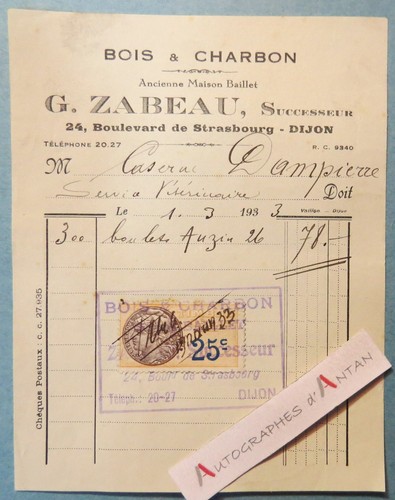 BOIS & CHARBON
Ancienne Maison Baillet
G. ZABEAU, SUCCESSEUR
24, Boulevard de Strasbourg - DIJON
TÉLÉPHONE 20.27 R. C. 9340
M Caserne Dampierre
Service Vétérinaire Doit
Le 1. 3 1933
300 boulets Anzin 26 78.
Chèques Postaux : c. c. 27.935
BOIS & CHARBON
25c
24, Boul. de Strasbourg
Téléph.: 20-27 DIJON
AUTOGRAPHES d'ANTAN